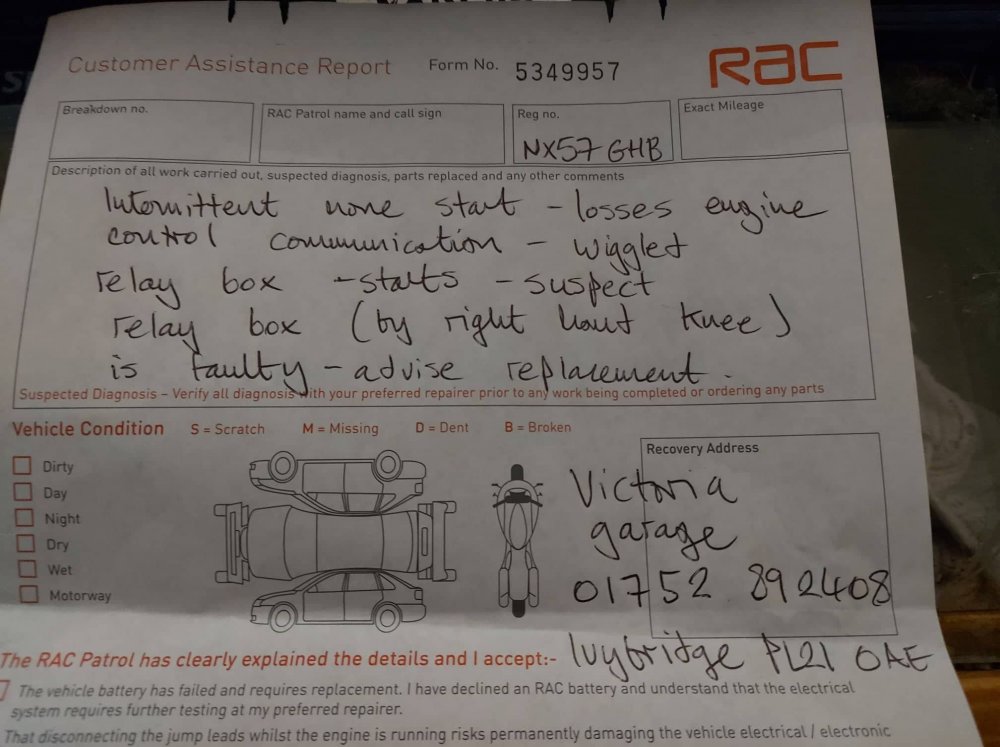 Customer Assistance Report Form No. 5349957 RAC
Breakdown no.
RAC Patrol name and call sign
Reg no.
NX57 GHB
Exact Mileage
Description of all work carried out, suspected diagnosis, parts replaced and any other comments
Intermittent none start - losses engine
control communication - wiggled
relay box - starts - suspect
relay box (by right hand knee)
is faulty - advise replacement.
Suspected Diagnosis – Verify all diagnosis with your preferred repairer prior to any work being completed or ordering any parts
Vehicle Condition S = Scratch M = Missing D = Dent B = Broken
Dirty
Day
Night
Dry
Wet
Motorway
Recovery Address
Victoria
garage
01752 892408
Ivybridge PL21 0AE
The RAC Patrol has clearly explained the details and I accept:-
The vehicle battery has failed and requires replacement. I have declined an RAC battery and understand that the electrical
system requires further testing at my preferred repairer.
That disconnecting the jump leads whilst the engine is running risks permanently damaging the vehicle electrical / electronic